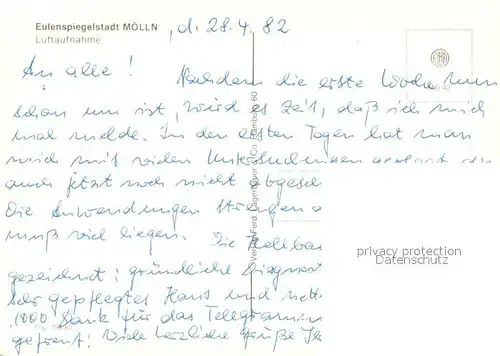 Eulenspiegelstadt MÖLLN
Luftaufnahme
, d. 28.4.82
An alle !
Nachdem die erste Woche nun
schon um ist, wird es Zeit, daß ich mich
mal melde. In den ersten Tagen hat man
mich mit vielen Untersuchungen geplagt, die
auch jetzt noch nicht abgesch
Die Anwendungen strengen a
muß viel liegen. Die
gezeichnet: gründliche Diagnost
sehr gepflegtes Haus und nette
1000 Dank für das Telegramm
gefreut! Viele herzliche Grüße
Verlag Ferd. Lagerbauer & Co. Hamburg 60
privacy protection
Datenschutz